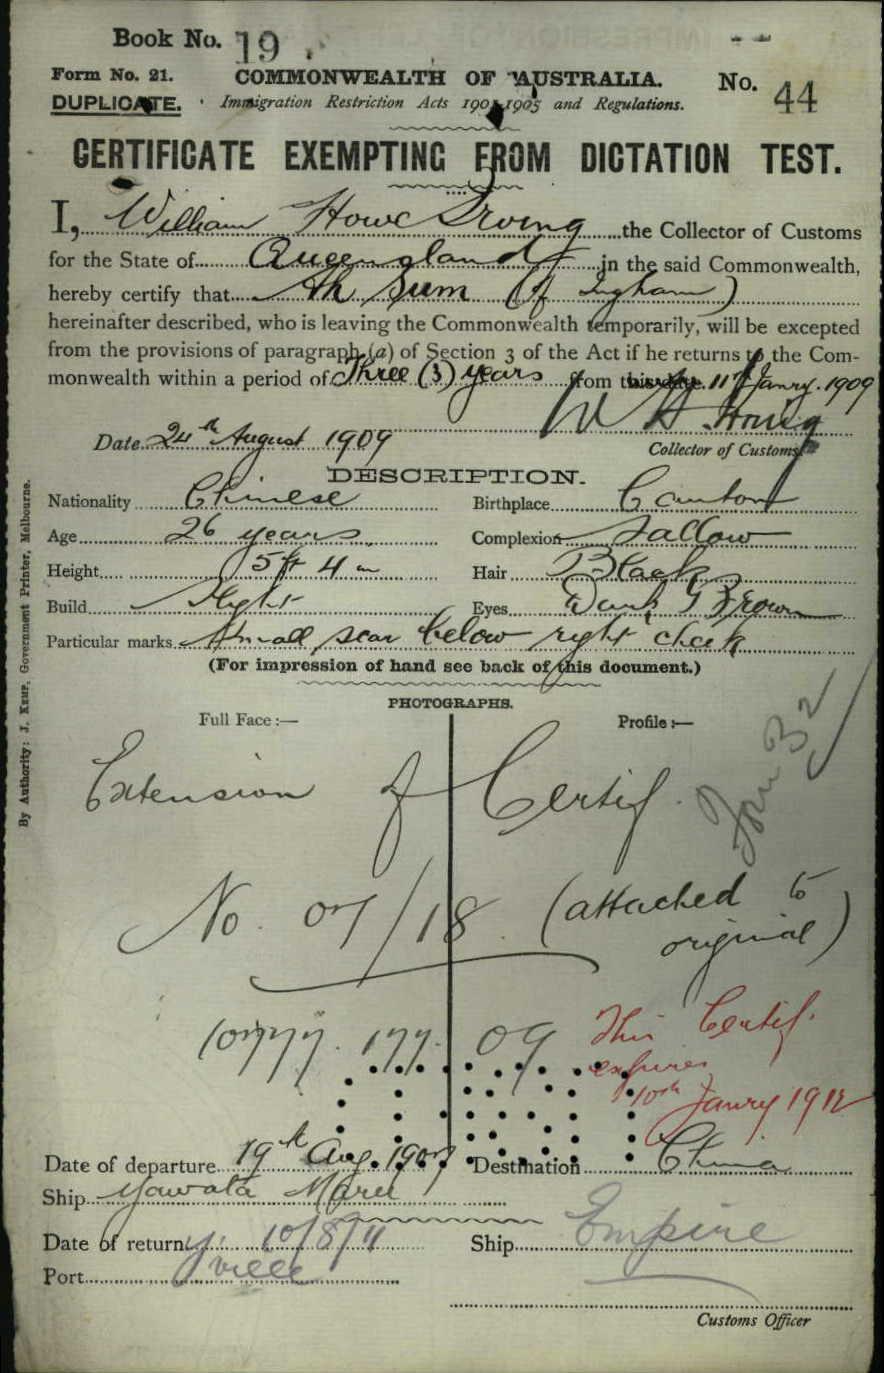 Book No. 19
Form No. 21. COMMONWEALTH OF AUSTRALIA. No. 44
DUPLICATE. Immigration Restriction Acts 1901-1905 and Regulations.
CERTIFICATE EXEMPTING FROM DICTATION TEST.
I, William Howe Irving the Collector of Customs
for the State of Queensland in the said Commonwealth,
hereby certify that Ah Sum (of Ingham)
hereinafter described, who is leaving the Commonwealth temporarily, will be excepted
from the provisions of paragraph (a) of Section 3 of the Act if he returns to the Com-
monwealth within a period of Three (3) years from this date. 11th Janry. 1909
W H Irving
Date 24th August 1909 Collector of Customs
DESCRIPTION.
Nationality Chinese Birthplace Canton
Age 26 years Complexion Sallow
Height 5 ft 4 in Hair Black
Build Slight Eyes Dark Brown
Particular marks Small scar below right cheek
(For impression of hand see back of this document.)
PHOTOGRAPHS.
Full Face :— Profile :—
Extension of Certif.
No. 07/18 (attached to
original)
10777. 177. 09
This Certif.
expires
10th Janry 1912
Date of departure 19th Aug. 1907 Destination China
Ship Yawata Maru
Date of return 10/8/11 Ship Empire
Port T'ville
Customs Officer
By Authority: J. Kemp, Government Printer, Melbourne.